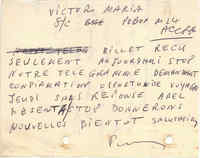 VICTOR MARIA
S/C POBOX M14
ACCRA
BILLET RECU
SEULEMENT AUJOURDHUI STOP
NOTRE TELEGRAMME DEMANDANT
CONFIRMATION VOYAGE
JEUDI SANS REPONSE ABEL
ABSENT STOP DONNERONS
NOUVELLES BIENTOT